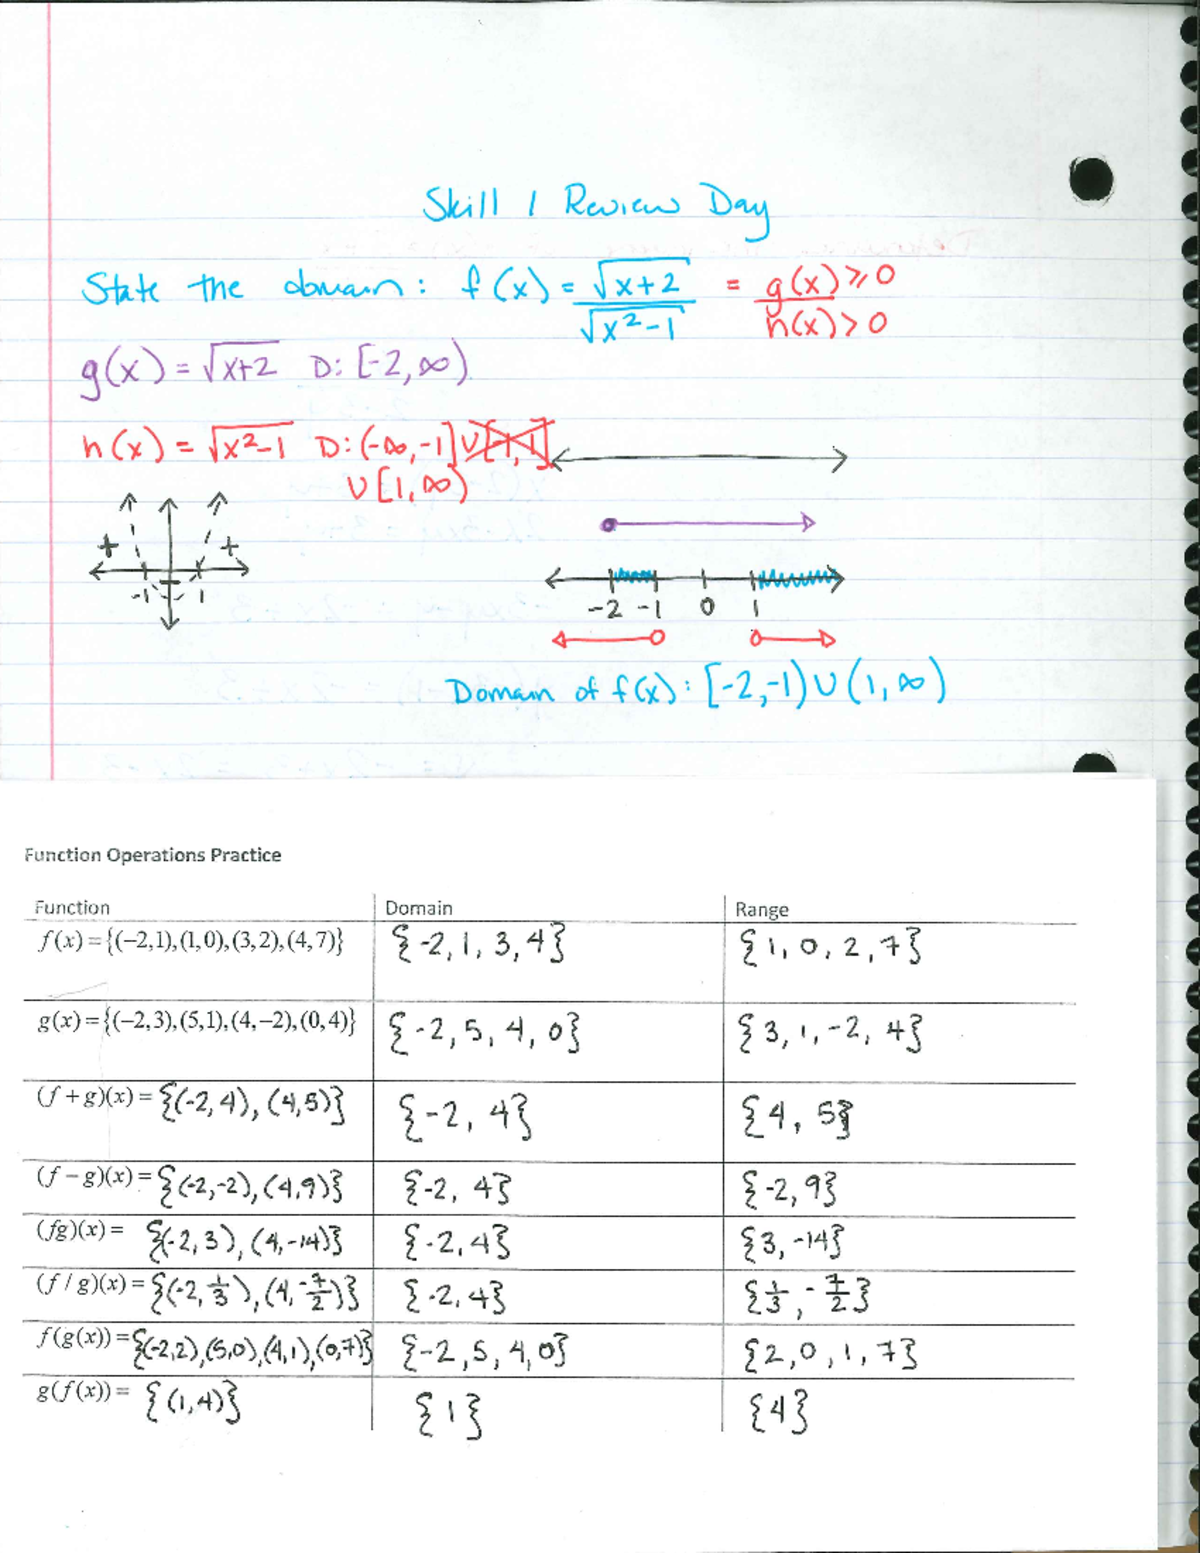 Skill 1 Review Day
State the domain: f(x) = √(x+2) / √(x²-1) = g(x) ≥ 0 / h(x) > 0
g(x) = √(x+2) D: [-2, ∞)
h(x) = √(x²-1) D: (-∞, -1] ∪ [-1, 1]
∪ [1, ∞)
+ +
-1 1
-2 -1 0 1
Domain of f(x): [-2,-1) ∪ (1, ∞)
Function Operations Practice
Function Domain Range
f(x) = {(−2,1),(1,0),(3,2),(4,7)} {-2, 1, 3, 4} {1, 0, 2, 7}
g(x) = {(−2,3),(5,1),(4,−2),(0,4)} {-2, 5, 4, 0} {3, 1, -2, 4}
(f + g)(x) = {(-2,4), (4,5)} {-2, 4} {4, 5}
(f − g)(x) = {(-2,-2), (4,9)} {-2, 4} {-2, 9}
(fg)(x) = {(-2,3), (4,-14)} {-2, 4} {3, -14}
(f / g)(x) = {(-2, 1/3), (4, -7/2)} {-2, 4} {1/3, -7/2}
f(g(x)) = {(-2,2),(5,0),(4,1),(0,7)} {-2, 5, 4, 0} {2, 0, 1, 7}
g(f(x)) = {(1,4)} {1} {4}